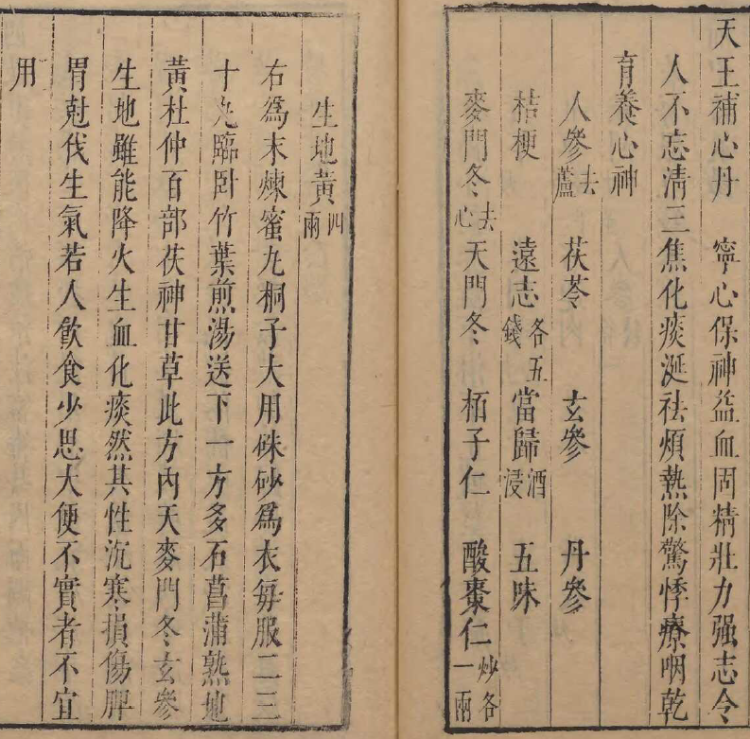 天王補心丹　寧心保神益血固精壯力强志令
人不忘清三焦化痰涎祛煩熱除驚悸療咽乾
育養心神
人參去蘆　茯苓　玄參　丹參
桔梗　遠志各五錢　當歸酒浸　五味
麥門冬去心　天門冬　栢子仁　酸棗仁炒各一兩
生地黃四兩
右爲末煉蜜丸桐子大用硃砂爲衣每服二三
十丸臨卧竹葉煎湯送下一方多石菖蒲熟地
黃杜仲百部茯神甘草此方內天麥門冬玄參
生地雖能降火生血化痰然其性沉寒損傷脾
胃尅伐生氣若人飲食少思大便不實者不宜
用